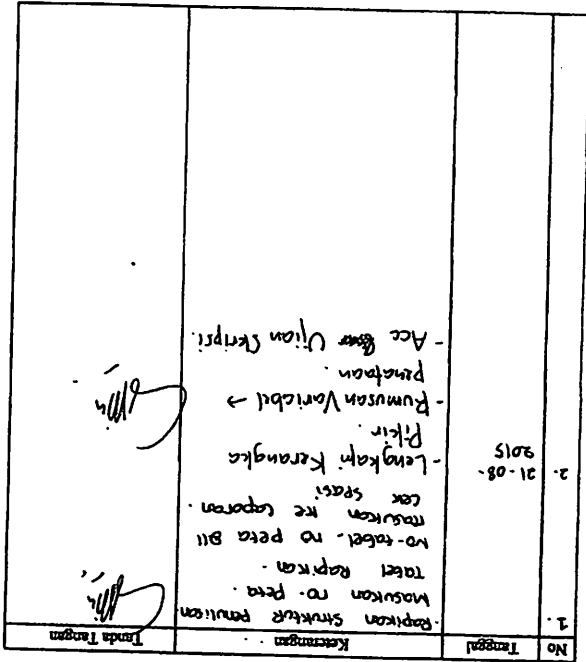 No Tanggal Keterangan Tanda Tangan
1. - Rapikan Struktur Penulisan
Masukan no. Peta.
Tabel Rapikan -
No-tabel - no peta dll
Masukan ke laporan.
cek spasi
2. 21-08-2015 - Lengkapi Kerangka
Pikir.
- Rumusan Variabel →
penataan.
- Acc Ujian Skripsi.